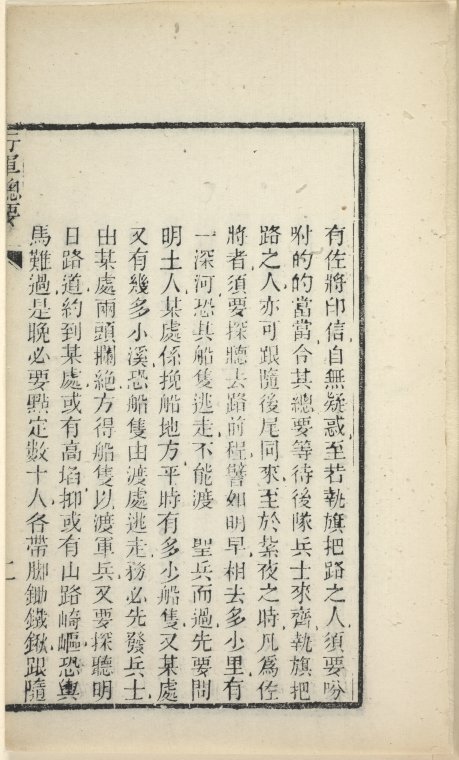 有佐將印信自無疑惑至若執旗把路之人須要吩
咐的的當當令其總要等待後隊兵士來齊執旗把
路之人亦可跟隨後尾同來至於紮夜之時凡爲佐
將者須要探聽去路前程譬如明早相去多少里有
一深河恐其船隻逃走不能渡 聖兵而過先要問
明土人某處係挽船地方平時有多少船隻又某處
又有幾多小溪恐船隻由渡處逃走務必先發兵士
由某處兩頭攔絕方得船隻以渡軍兵又要探聽明
日路道約到某處或有高埳抑或有山路崎嶇恐輿
馬難過是晚必要點定數十人各帶脚鋤鐵鍬跟隨
行軍總要
二